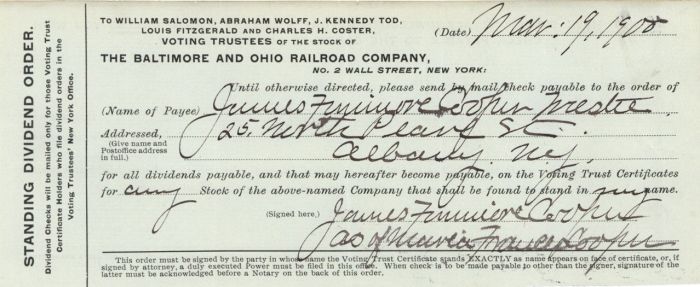 STANDING DIVIDEND ORDER.
Dividend Checks will be mailed only for those Voting Trust
Certificate Holders who file dividend orders in the
Voting Trustees' New York Office.
TO WILLIAM SALOMON, ABRAHAM WOLFF, J. KENNEDY TOD,
LOUIS FITZGERALD AND CHARLES H. COSTER,
VOTING TRUSTEES OF THE STOCK OF
(Date) Mar. 19, 1900
THE BALTIMORE AND OHIO RAILROAD COMPANY,
NO. 2 WALL STREET, NEW YORK:
Until otherwise directed, please send by mail check payable to the order of
(Name of Payee) James Fenimore Cooper Trustee
Addressed, 25 North Pearl St.
(Give name and
Postoffice address
in full.)
Albany. N.Y.
for all dividends payable, and that may hereafter become payable, on the Voting Trust Certificates
for any Stock of the above-named Company that shall be found to stand in my name.
(Signed here,) James Fenimore Cooper
of Maria Frances Cooper
This order must be signed by the party in whose name the Voting Trust Certificate stands EXACTLY as name appears on face of certificate, or, if
signed by attorney, a duly executed Power must be filed in this office. When check is to be made payable to other than the signer, signature of the
latter must be acknowledged before a Notary on the back of this order.